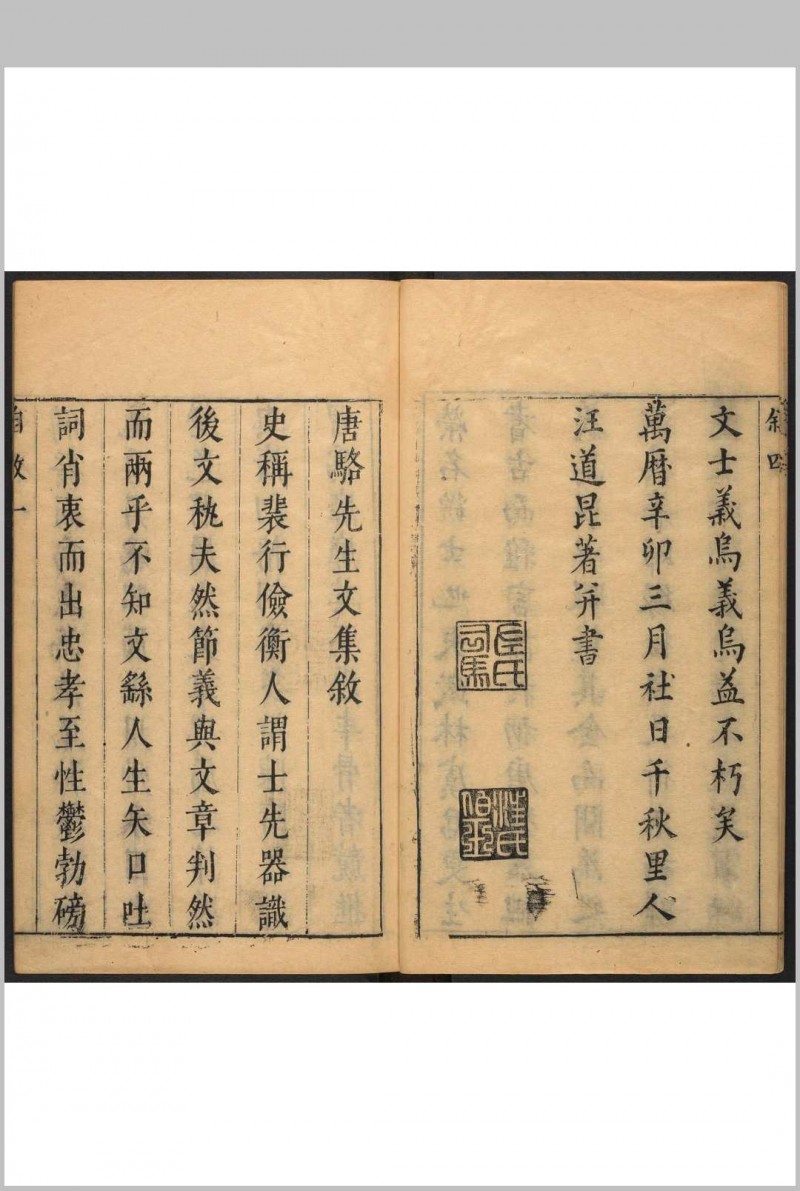 叙四
文士義烏義烏益不朽矣
萬曆辛卯三月社日千秋里人
汪道昆著并書
左氏司馬
汪氏伯玉
唐駱先生文集敘
史稱裴行儉衡人謂士先器識
後文秇夫然節義與文章判然
而兩乎不知文繇人生矢口吐
詞肖衷而出忠孝至性鬱勃磅
自敘一